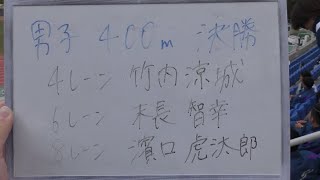 男子 400m 決勝
4レーン 竹内 涼城
6レーン 末長 智幸
8レーン 濱口 虎汰郎